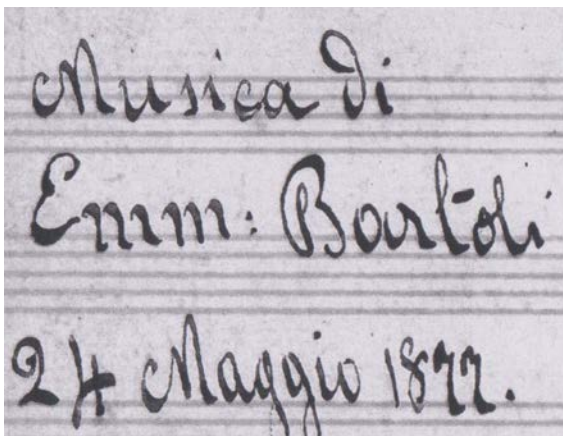 Musica di
Emm: Bartoli
24 Maggio 1877.